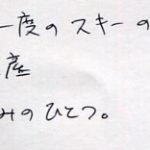 一度のスキーの
座
みのひとつ。